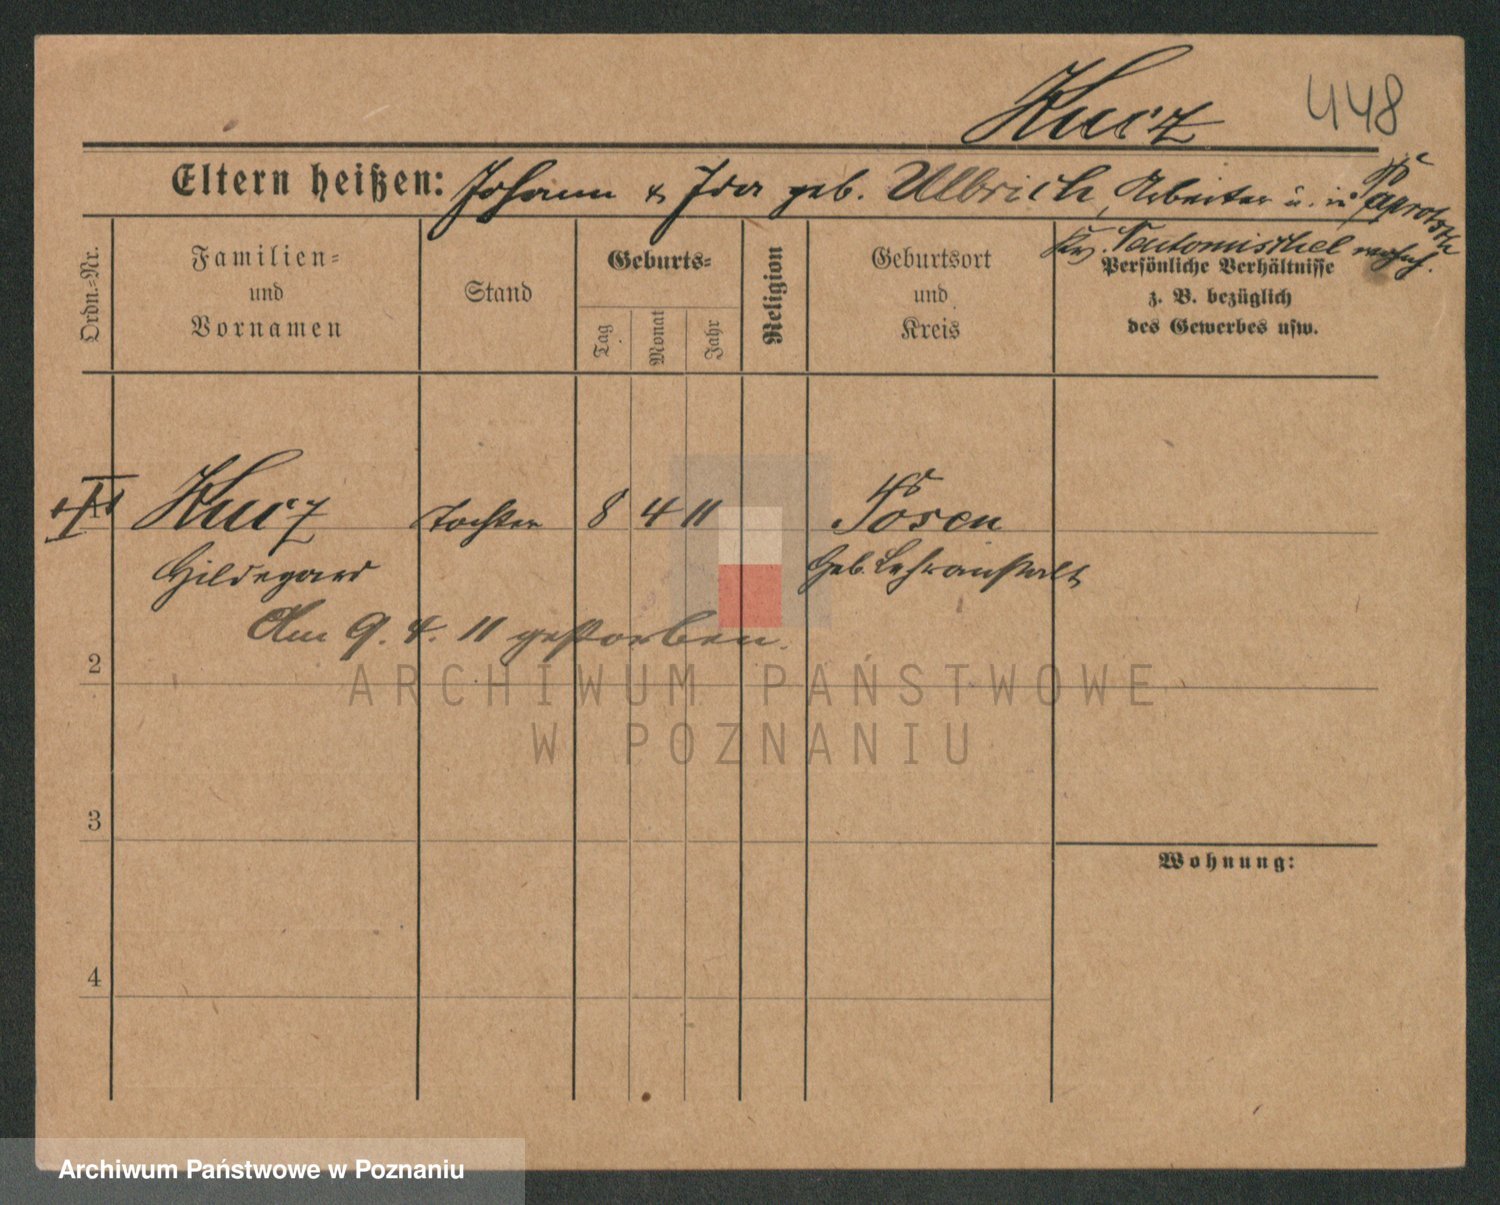 Kucz 448
Eltern heißen: Johann & Ida geb. Ullrich, Arbeiter u. in Paprotsch
Krs. Neutomischel wohnh.
Ordn.-Nr.
Familien-
und
Vornamen
Stand
Geburts-
Tag
Monat
Jahr
Religion
Geburtsort
und
Kreis
Persönliche Verhältnisse
z. B. bezüglich
des Gewerbes usw.
Kucz Tochter 8 4 11 Posen
Hildegard Heb. Lehranstalt
Am 9. 4. 11 gestorben.
2
ARCHIWUM PAŃSTWOWE
W POZNANIU
3
Wohnung:
4
Archiwum Państwowe w Poznaniu